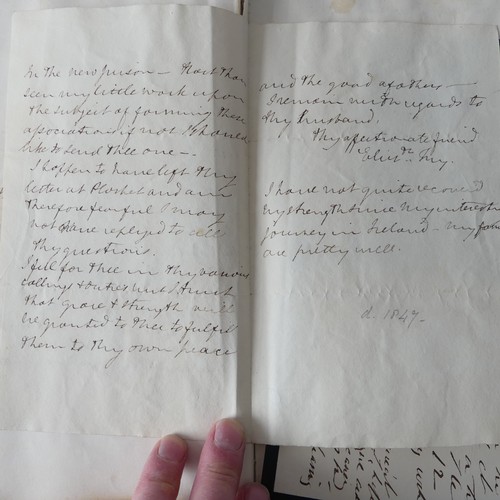 In the new prison – Hast thou
seen my little work upon
the subject of forming these
associations if not I should
like to send thee one –
I happen to have left thy
letter at Plashet and am
therefore fearful I may
not have replyed to all
thy questions.
I feel for thee in thy various
callings & duties but I trust
that grace & strength will
be granted to thee to fulfil
them to thy own peace
and the good of others –
I remain with regards to
thy husband,
Thy affectionate friend
Elizth Fry.
I have not quite recovered
my strength since my interesting
journey in Ireland – my
are pretty well.
d. 1847–